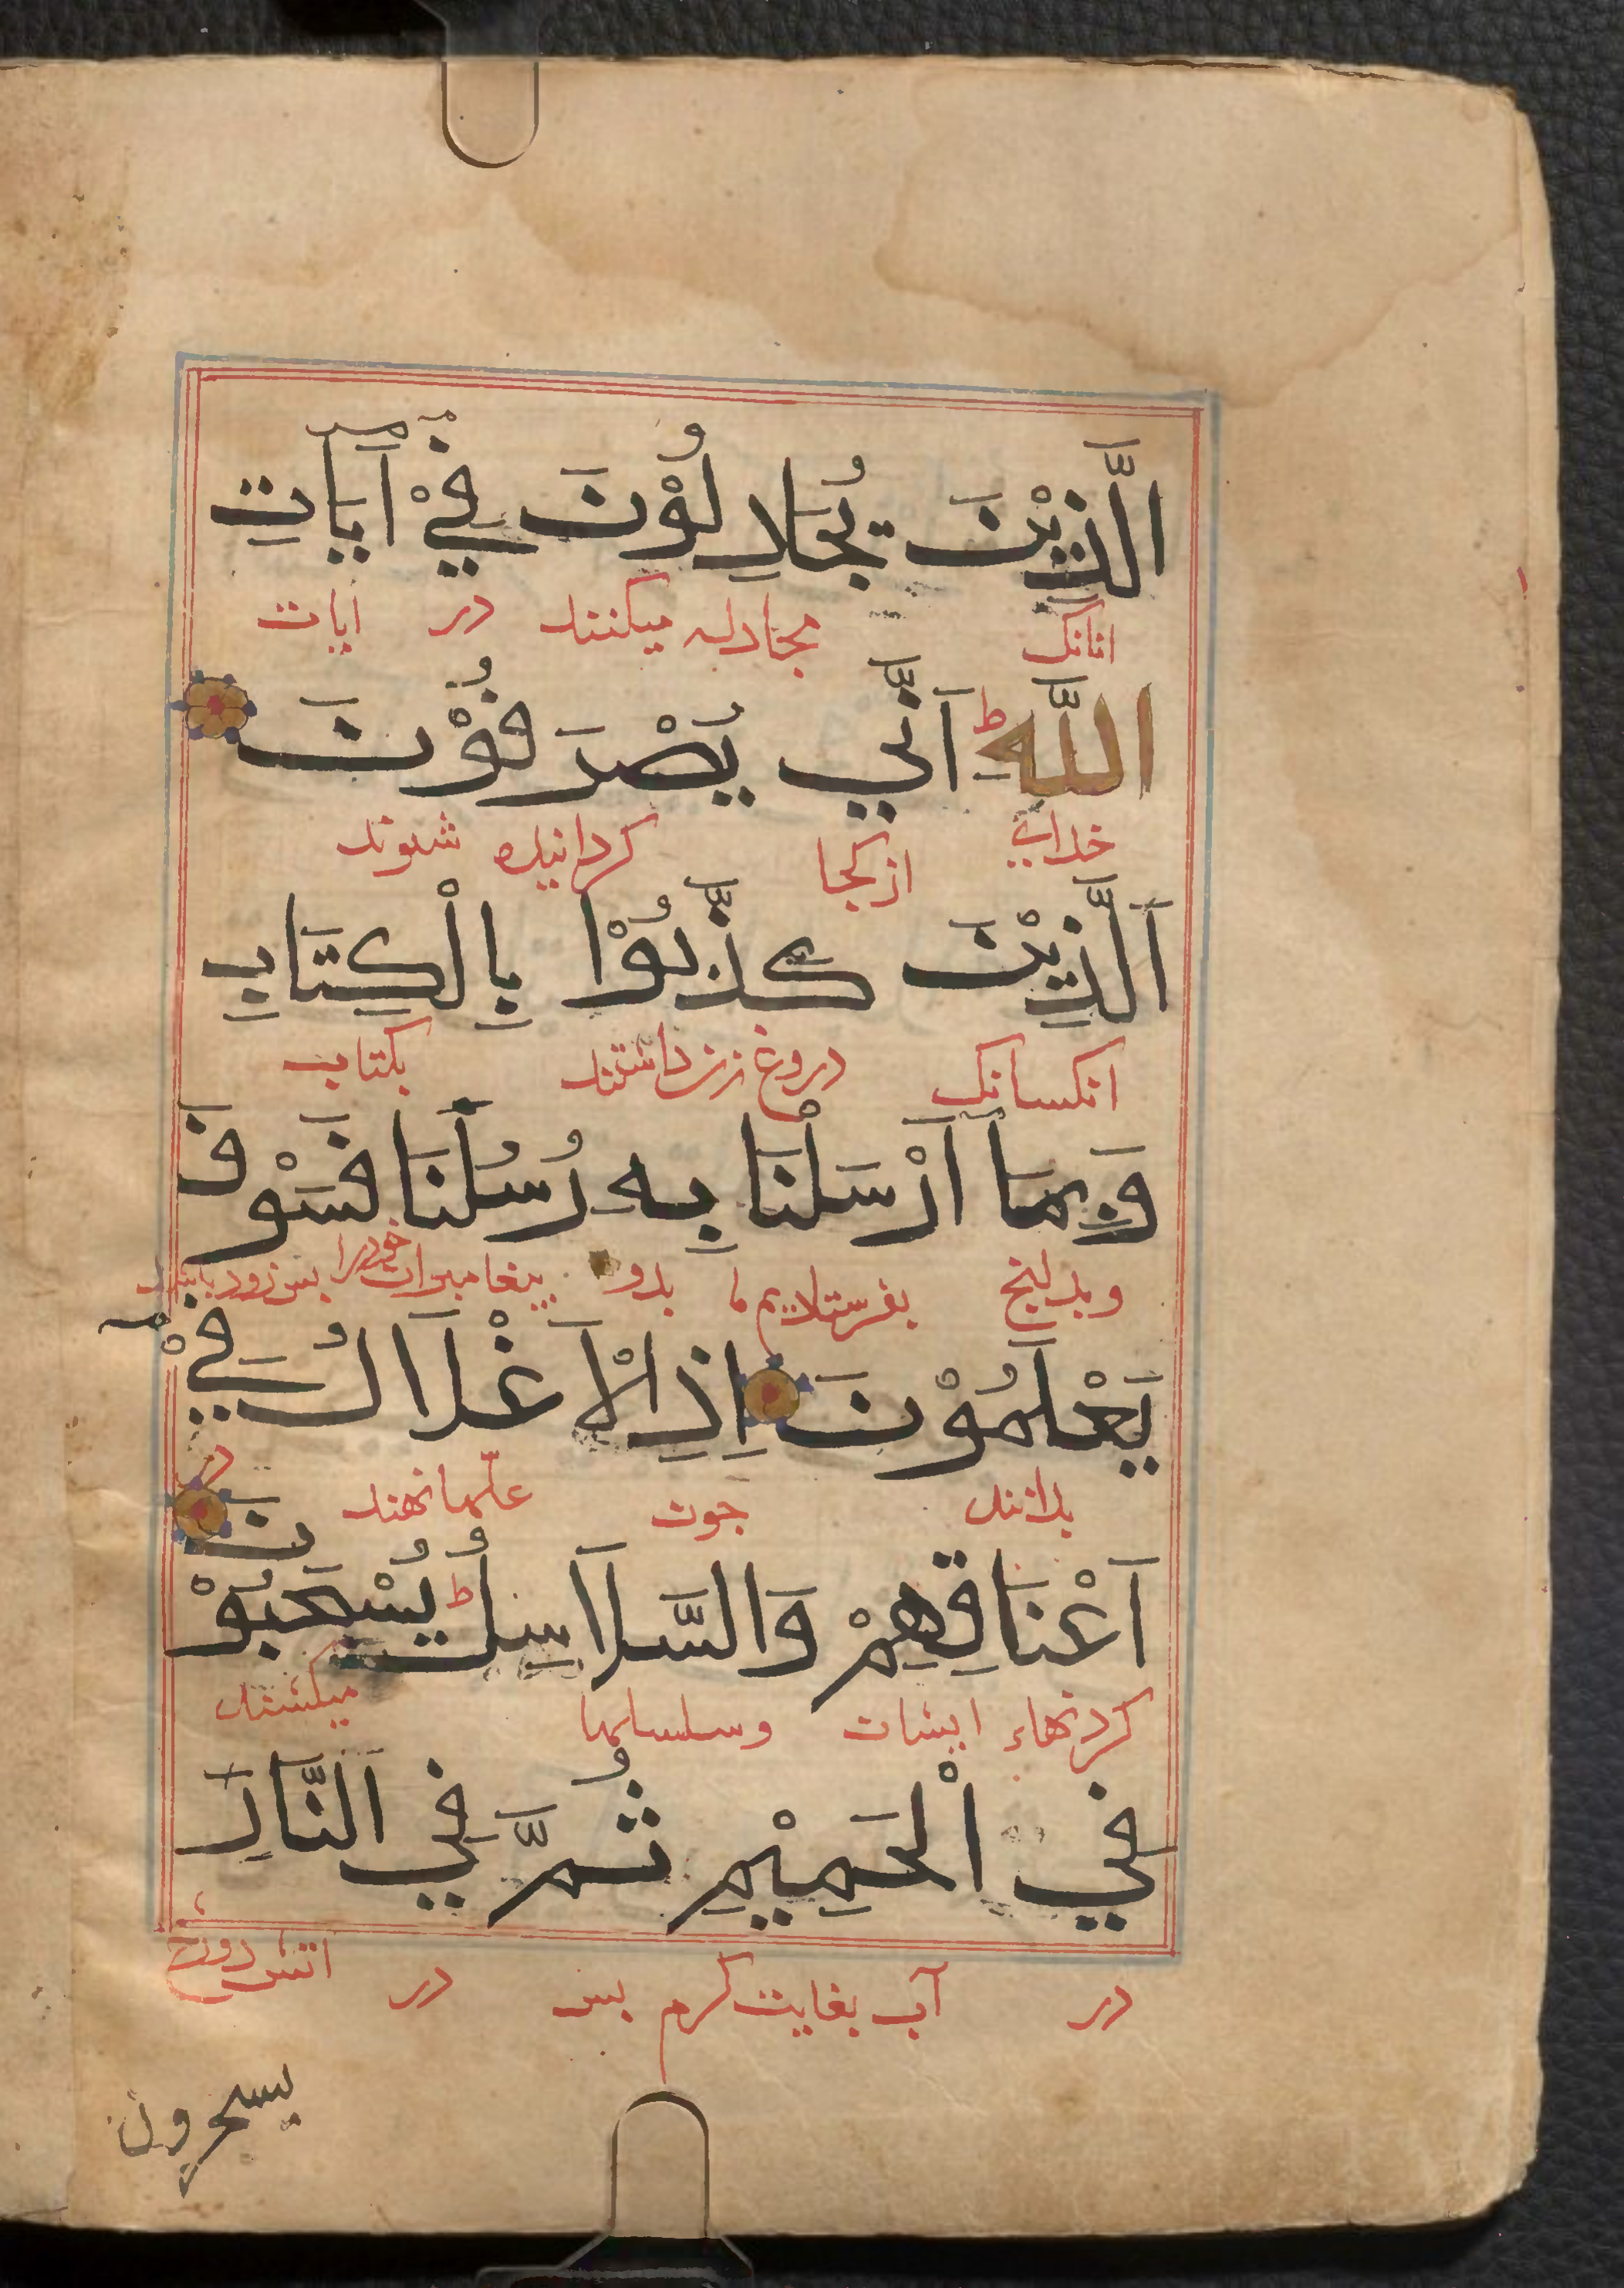 الَّذِيْنَ يُجَادِلُوْنَ فِيْ اٰيَاتِ
انانک مجادله میکنند در ایات
اللَّهِ ط اَنَّي يُصْرَفُوْنَ
خدای از کجا کردانیده شوند
اَلَّذِيْنَ كَذَّبُوْا بِالْكِتَابِ
انکسانک دروغ زن داشتند بکتاب
وَبِمَا اَرْسَلْنَا بِهِ رُسُلَنَا فَسَوْفَ
وبدانج بفرستادیم ما بدو پیغامبران خودرا بس زود باشد
يَعْلَمُوْنَ اِذِ الْاَغْلَالُ فِيْ
بدانند جون غلّها نهند در
اَعْنَاقِهِمْ وَالسَّلَاسِلُ ط يُسْحَبُوْنَ
کردنهاء ایشان وسلسلها میکشند
فِي الْحَمِيْمِ ثُمَّ فِي النَّارِ
در آب بغایت کرم بس در اتش دوزخ
يسجرون